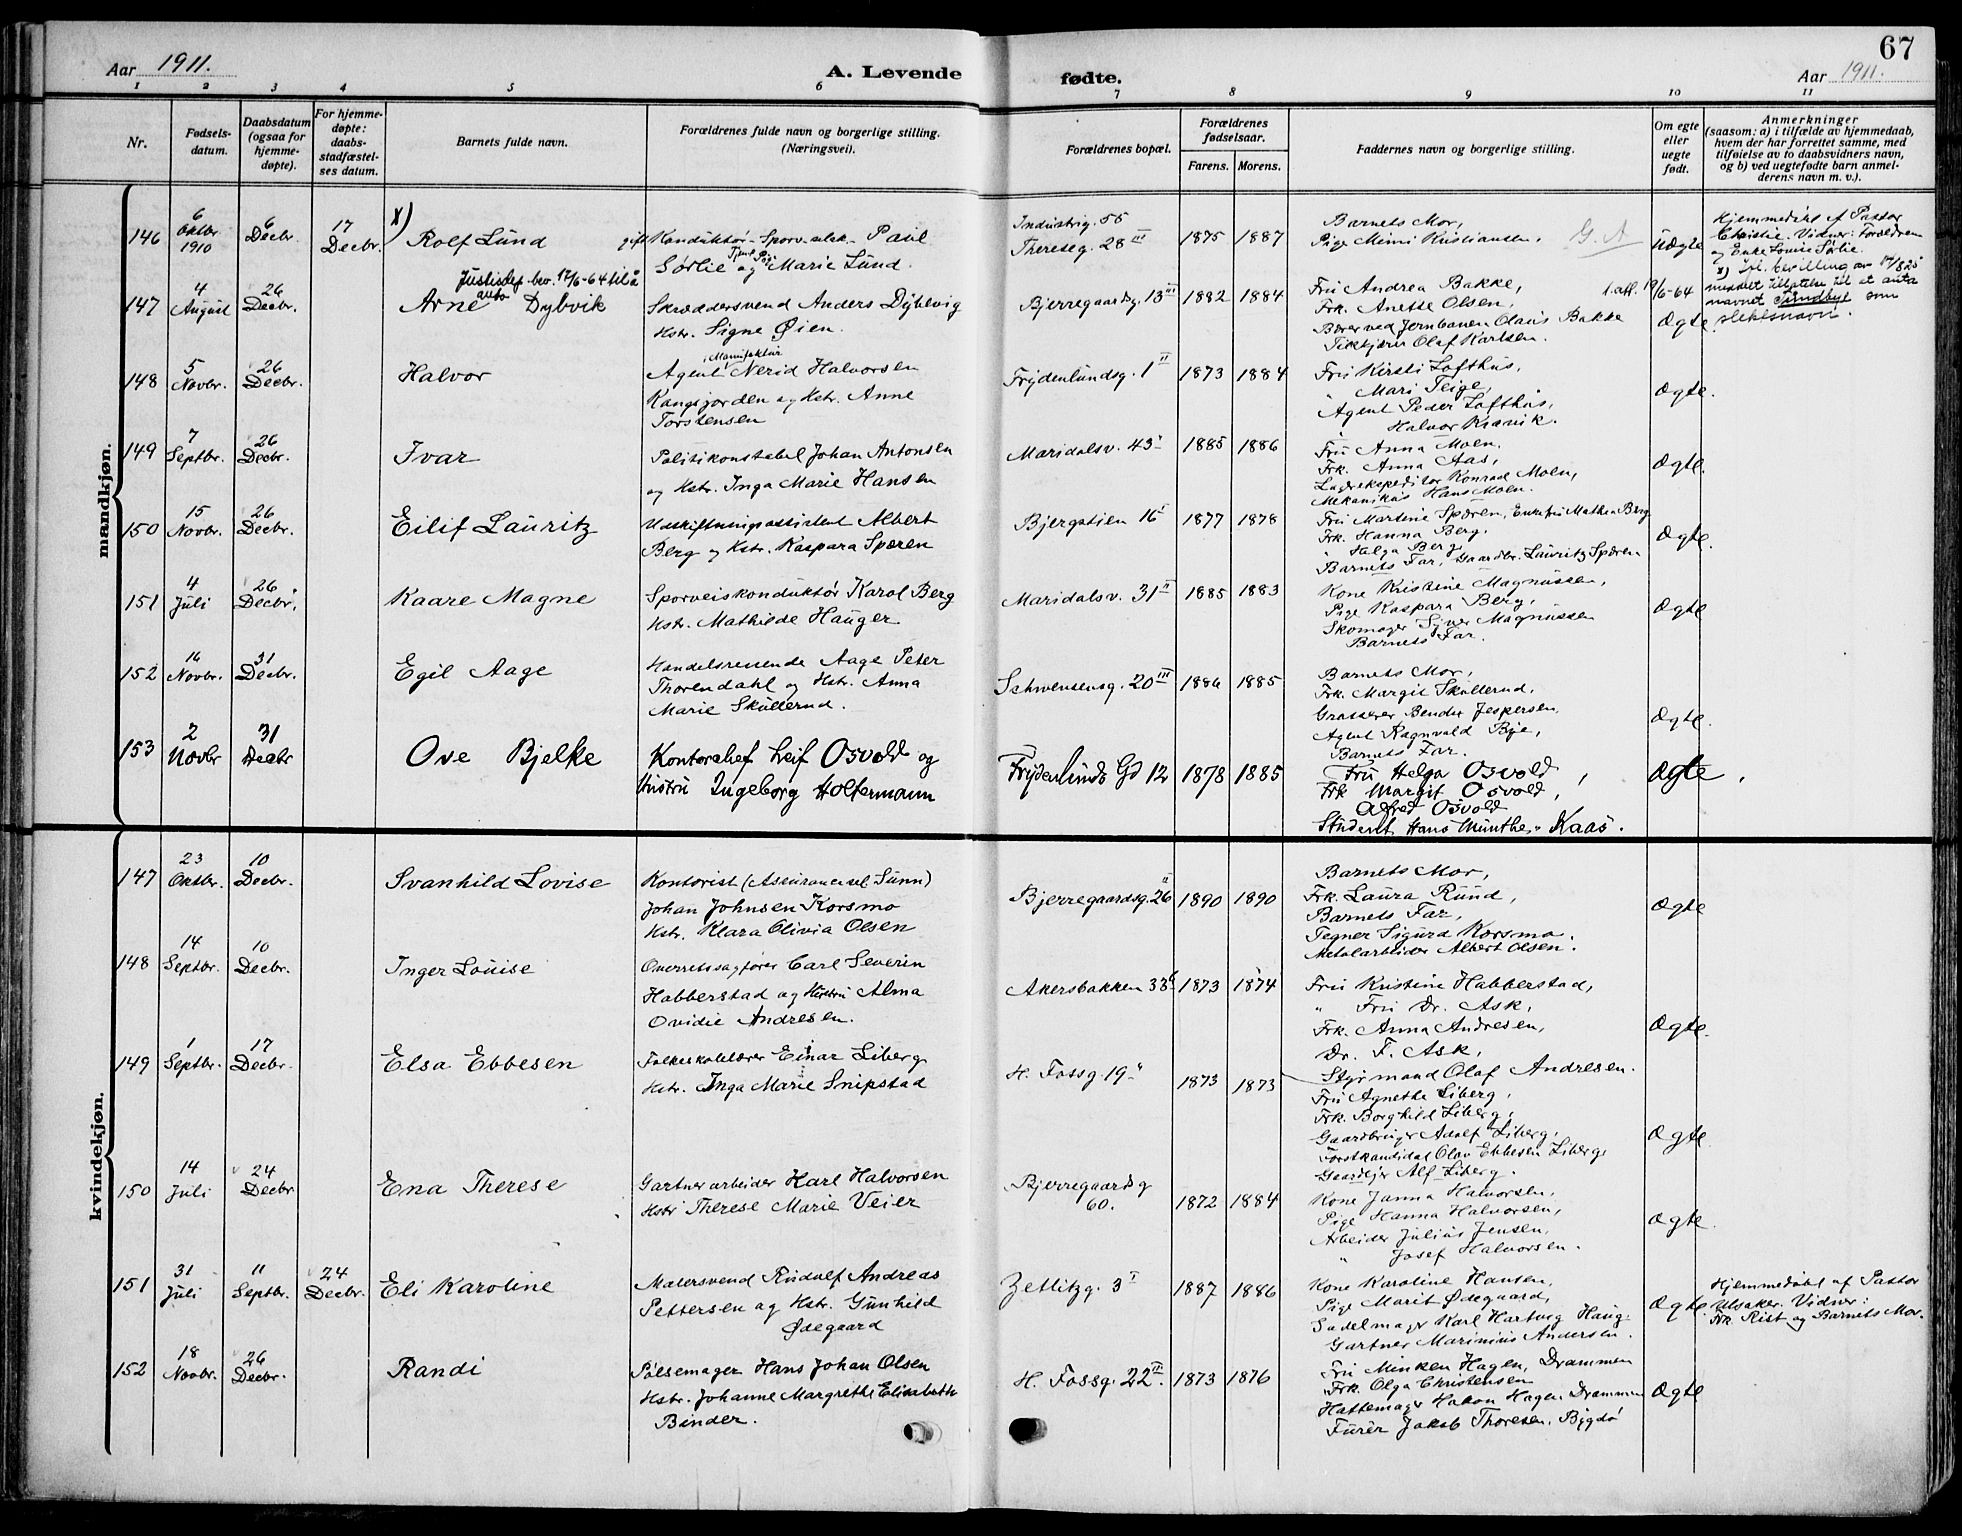 67
Aar 1911.
A. Levende fødte.
Aar 1911.
1 2 3 4 5 6 7 8 9 10 11
Nr.
Fødsels-
datum.
Daabsdatum
(ogsaa for
hjemme-
døpte).
For hjemme-
døpte:
daabs-
stadfæstel-
ses datum.
Barnets fulde navn.
Forældrenes fulde navn og borgerlige stilling.
(Næringsvei).
Forældrenes bopæl.
Forældrenes
fødselsaar.
Farens. Morens.
Faddernes navn og borgerlige stilling.
Om egte
eller
uegte
født.
Anmerkninger
(saasom: a) i tilfælde av hjemmedaab,
hvem der har forrettet samme, med
tilføielse av to daabsvidners navn,
og b) ved uegtefødte barn anmel-
derens navn m. v.).
mandkjøn.
146
6
Oktbr
1910
6
Decbr.
17
Decbr.
x)
Rolf Lund
gift Konduktør Paul
Sørlie og Pige Marie Lund.
Industrig. 55
Thereseg. 28 III
1875 1887
Barnets Mor,
Pige Mimi Kristiansen,
G. A
Uægte
Hjemmedøbt af Pastor
Christie. Vidner: Forældrene
og Enke Louise Sørlie.
navnet Sundbye som
slektsnavn.
147
4
August
26
Decbr.
Arne Dybvik
Skræddersvend Anders Dybvig
Hstr. Signe Øien.
Bjerregaardsg. 13 III
1882 1884
Fru Andrea Bakke,
Frk. Anette Olsen,
Bærer ved Jernbanen Olaus Bakke
Olaf Karlsen.
Ægte
148
5
Novbr.
26
Decbr.
Halvor
Manufaktur
Agent Nerid Halvorsen
Kongsjorden og Hstr. Anne
Torstensen
Frydenlundsg. 1 II
1873 1884
Fru Kirsti Lofthus,
" Mari Teige,
Agent Peder Lofthus,
" Halvor Kravik.
Ægte.
149
7
Septbr.
26
Decbr.
Ivar
Politikonstabel Johan Antonsen
og Hstr. Inga Marie Hansen
Maridalsv. 43
1885 1886
Fru Anna Moen.
Frk. Anna Aas,
Lagerekspeditør Konrad Moen,
Mekanikus Hans Moen.
Ægte.
150
15
Novbr.
26
Decbr.
Eilif Lauritz
Utskiftningsassistent Albert
Berg og Hstr. Kaspara Spæren
Bjergstien 16 I
1877 1878
Fru Martine Spæren, Enkefru Mathea Berg
Frk. Hanna Berg,
" Helga Berg
Barnets Far, Gaardbr. Lauritz Spæren
Ægte.
151
4
Juli
26
Decbr.
Kaare Magne
Sporveiskonduktør Karol Berg
Hstr. Mathilde Hauger
Maridalsv. 31 II
1885 1883
Kone Kristine Magnussen,
Pige Kaspara Berg,
Skomager Syver Magnussen
Barnets Far.
Ægte
152
16
Novbr.
31
Decbr.
Egil Aage
Handelsreisende Aage Peter
Thorendahl og Hstr. Anna
Marie Skullerud.
Schwensensg. 20 III
1886 1885
Barnets Mor,
Frk. Margit Skullerud,
Grosserer Bendix Jespersen,
Agent Ragnvald Bye,
Barnets Far.
Ægte.
153
2
Novbr
31
Decbr
Ove Bjelke
Kontorchef Leif Osvold og
Hustru Ingeborg Holtermann
Frydenlunds Gd 12
1878 1885
Fru Helga Osvold,
Frk Margit Osvold,
Alfred Osvold
Student Hans Munthe-Kaas.
Ægte.
kvindekjøn.
147
23
Oktbr.
10
Decbr.
Svanhild Lovise
Kontorist (Assuransesel. Sunn)
Johan Johnsen Korsmo
Hstr. Klara Olivia Olsen
Bjerregaardsg. 26 II
1890 1890
Barnets Mor,
Frk. Laura Rund,
Barnets Far,
Tegner Sigurd Korsmo.
Metalarbeider Albert Olsen.
Ægte
148
14
Septbr.
10
Decbr.
Inger Louise
Overretssagfører Carl Severin
Habberstad og Hustru Alma
Ovidie Andresen.
Akersbakken 33
1873 1874
Fru Kristine Habberstad,
" Fru Dr. Ask,
Frk. Anna Andresen,
Dr. F. Ask,
Styrmand Olaf Andresen.
Ægte.
149
1
Septbr.
17
Decbr.
Elsa Ebbesen
Folkeskolelærer Einar Liberg
Hstr. Inga Marie Snipstad
H. Fossg. 19
1873 1873
Fru Agnethe Liberg,
Frk. Borghild Liberg,
Gaardbruger Adolf Liberg,
Forstkandidat Olav Ebbesen Liberg,
Gaardejer Alf Liberg.
Ægte.
150
14
Juli
24
Decbr.
Ena Therese
Gartnerarbeider Karl Halvorsen
Hstr Therese Marie Veier
Bjerregaardsg
60.
1872 1884
Kone Janna Halvorsen,
Pige Hanna Halvorsen,
Arbeider Julius Jensen,
" Josef Halvorsen.
Ægte.
151
31
Juli
11
Septbr.
24
Decbr.
Eli Karoline
Malersvend Rudolf Andreas
Pettersen og Hstr. Gunhild
Ødegaard
Zetlitzg. 3 I
1887 1886
Kone Karoline Hansen,
Pige Marit Ødegaard,
Sadelmager Karl Hartvig Haug.
Gartner Marinius Andersen.
Ægte.
Hjemmedøbt af Pastor
Ulsaker. Vidner:
Frk. Rist og Barnets Mor.
152
18
Novbr.
26
Decbr.
Randi
Pølsemager Hans Johan Olsen
Hstr. Johanne Margrethe Elisabeth
Binder.
H. Fossg. 22 III.
1873 1876
Fru Minken Hagen, Drammen
Frk. Olga Christensen
Hattemager Hakon Hagen Drammen
Furer Jakob Thoresen, Bygdø
Ægte